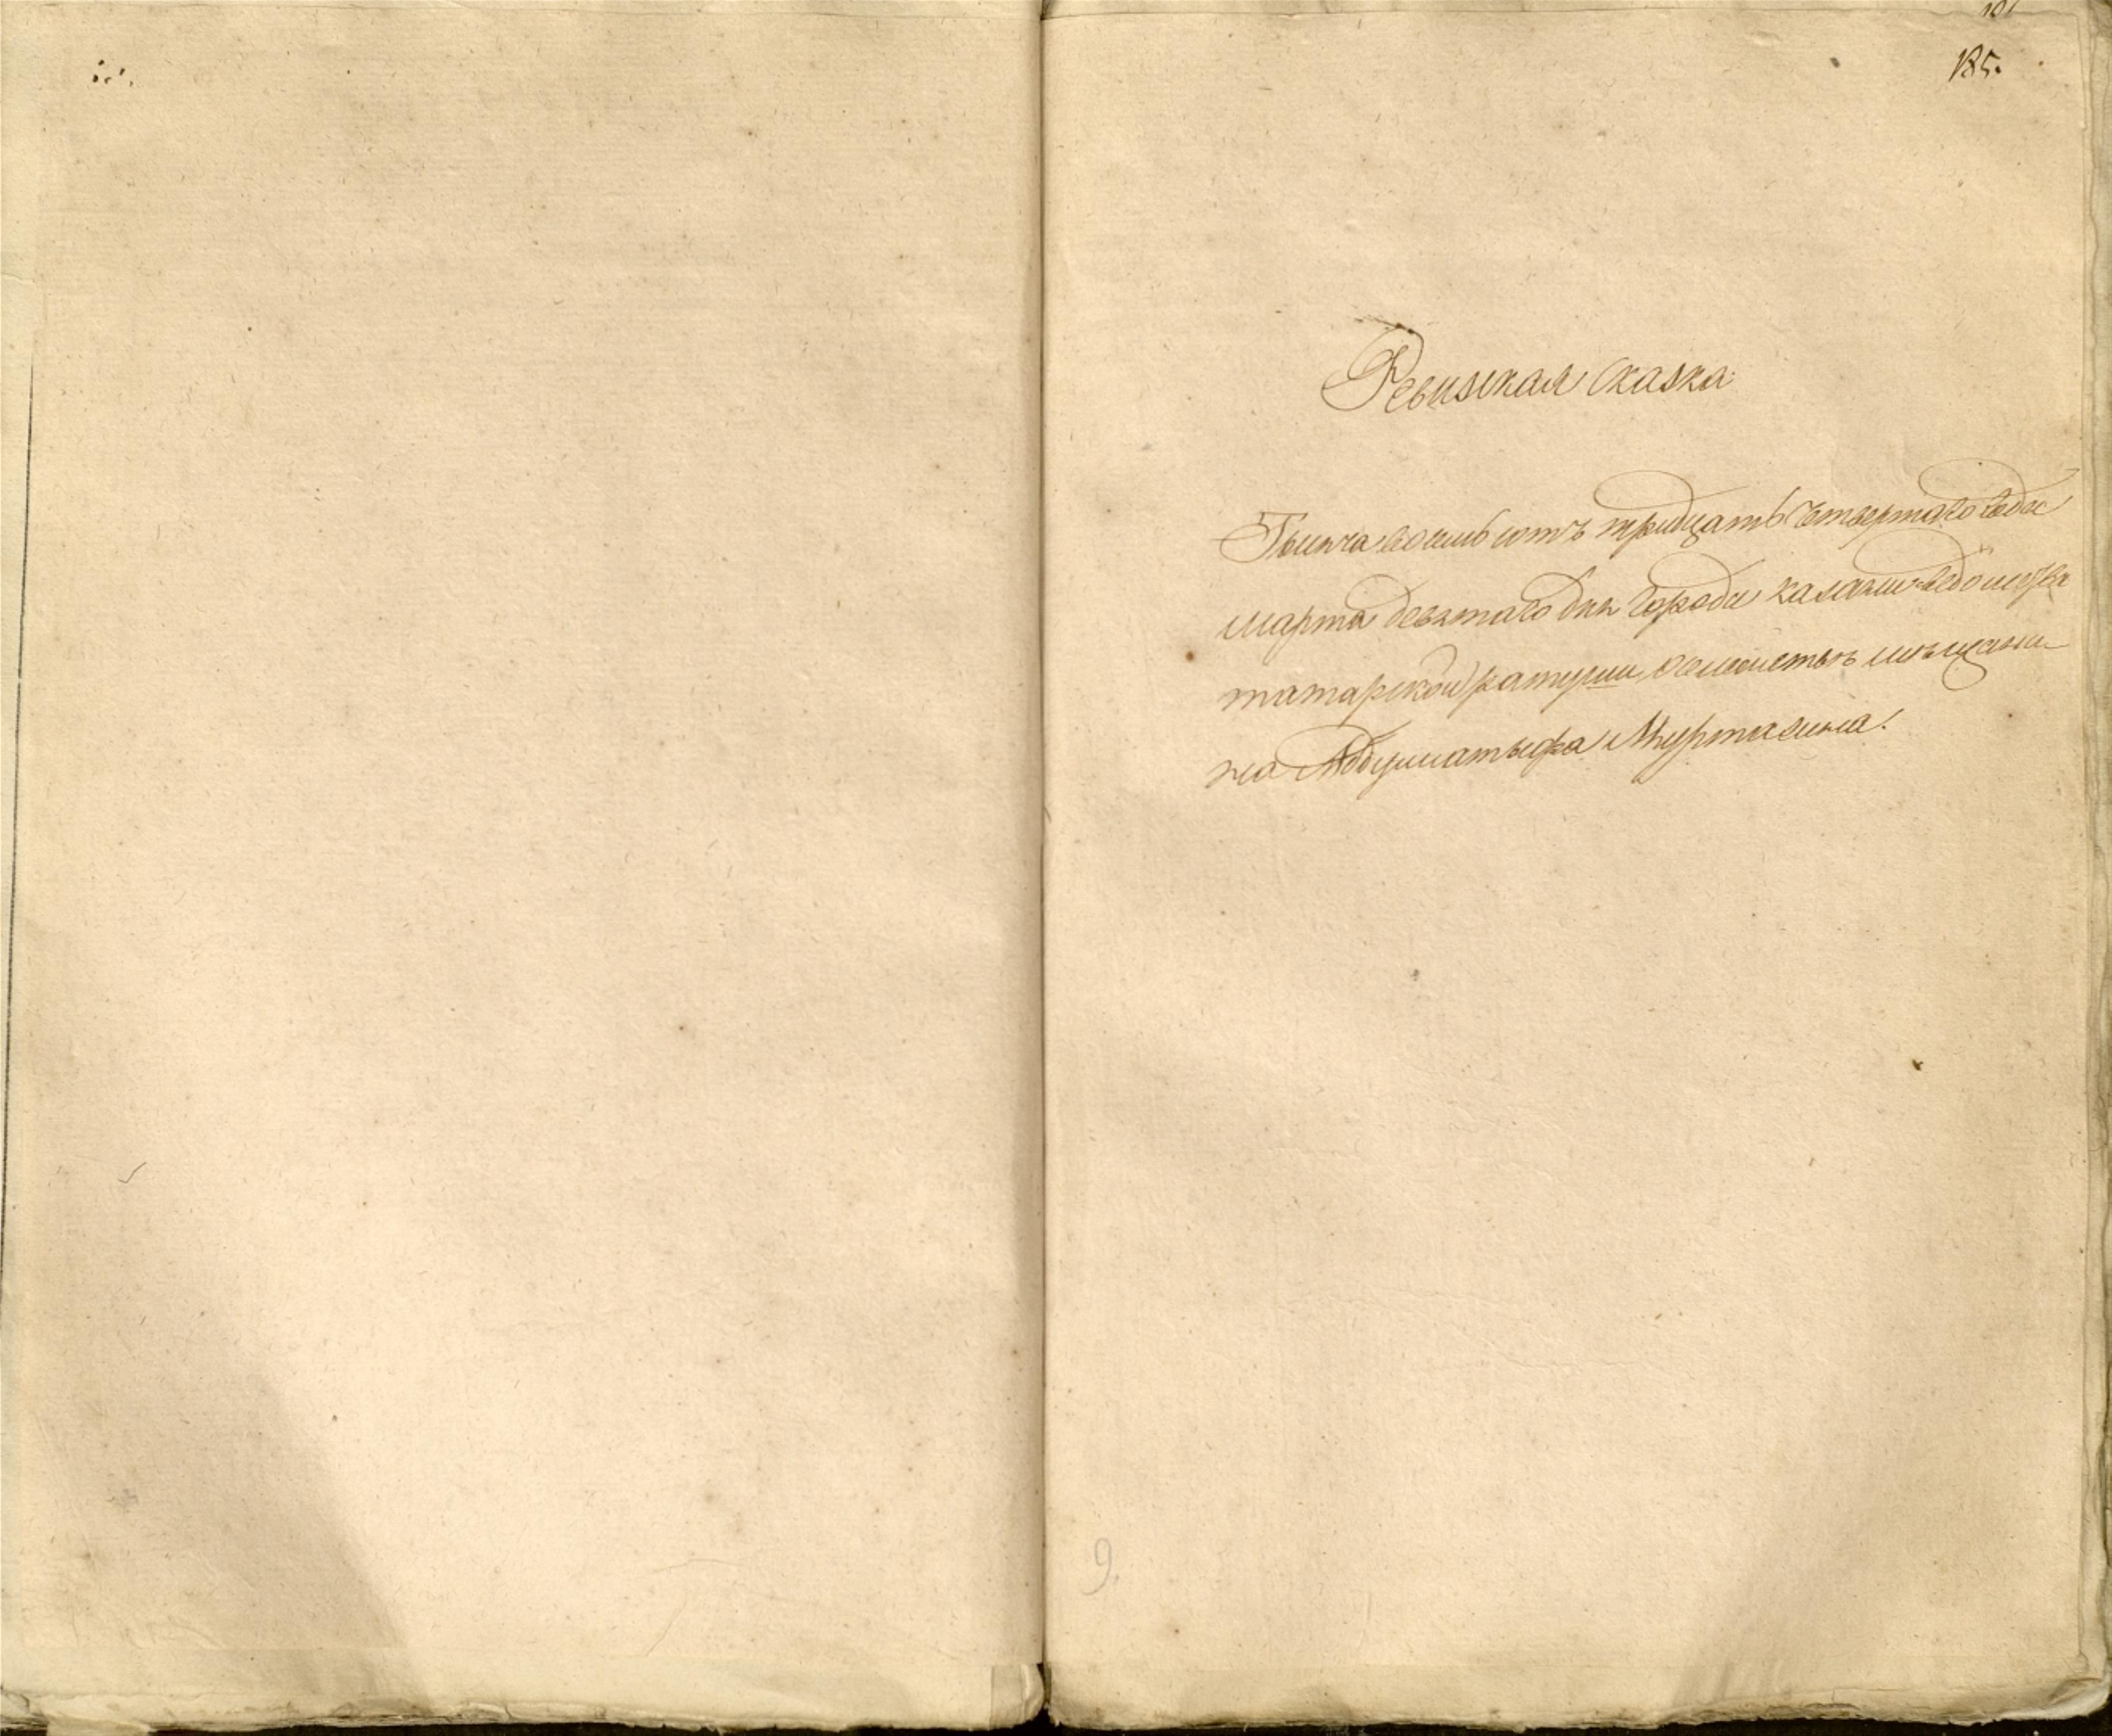 185.
Ревизская сказка
Тысеча восемь сотъ тридцать четвертаго года
марта девятаго дня города казани ведомства
татарской ратуши о семействе мещани-
на Абдуллатыфа Муртазина.
9